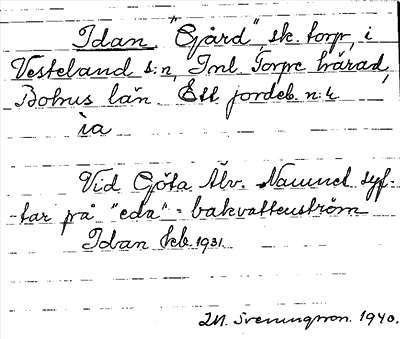 Idan, "Gård", sk. torp, i
Vesteland s:n, Inl. Torpe härad,
Bohus län. Ett jordeb. n:r
ia
Vid Göta Älv. Namnet syf-
-tar på "eda" = bakvattenström
Idan Kcb. 1931.
Sveningson. 1940.